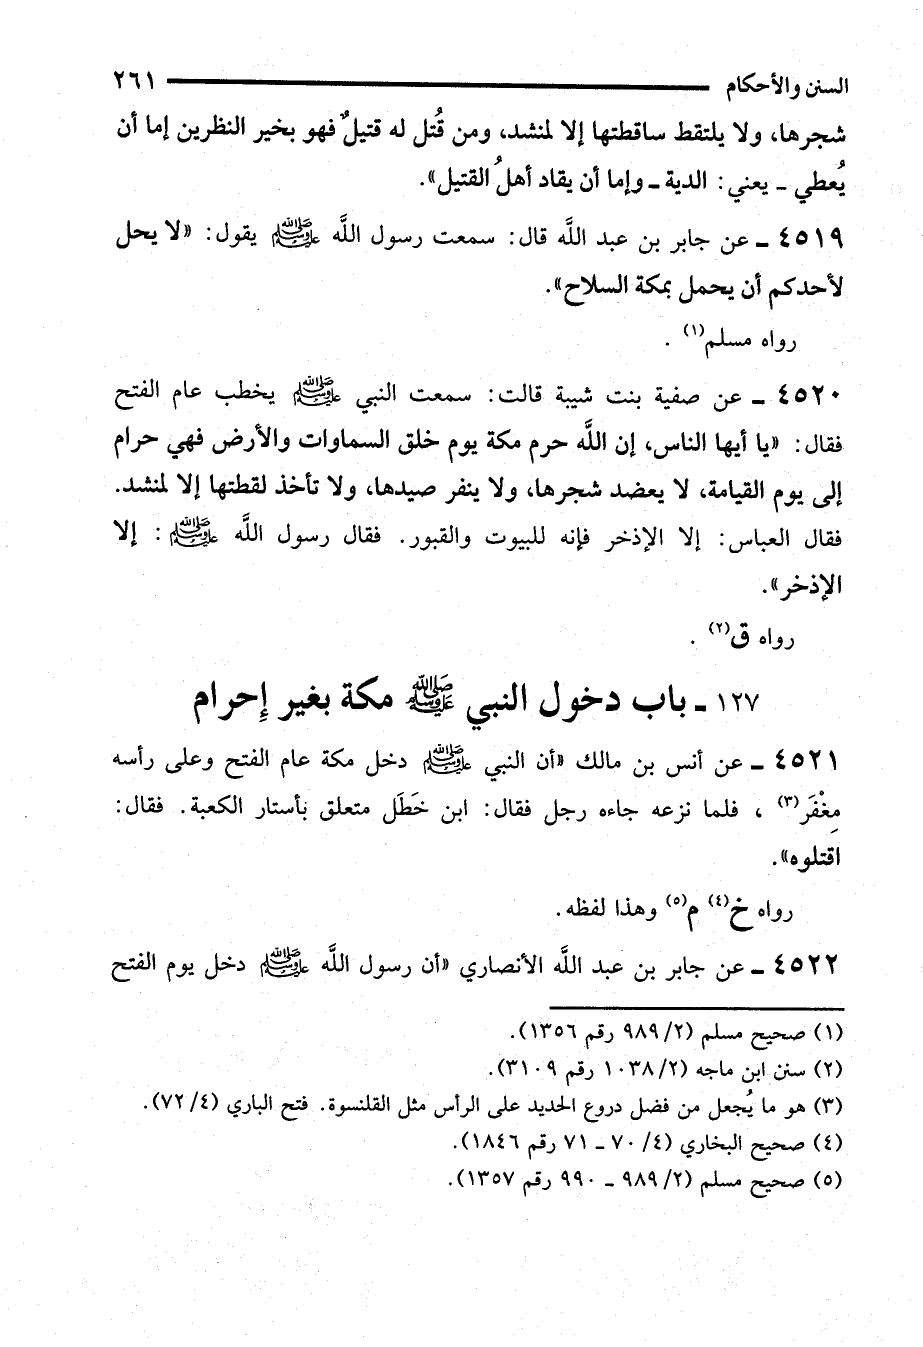 السنن والأحكام ـــــ ٢٦١
شجرها، ولا يلتقط ساقطتها إلا لمنشد، ومن قُتل له قتيلٌ فهو بخير النظرين إما أن
يُعطي ـ يعني: الدية ـ وإما أن يقاد أهلُ القتيل».
٤٥١٩ ـ عن جابر بن عبد اللَّه قال: سمعت رسول اللَّه ﷺ يقول: «لا يحل
لأحدكم أن يحمل بمكة السلاح».
رواه مسلم(١) .
٤٥٢٠ ـ عن صفية بنت شيبة قالت: سمعت النبي ﷺ يخطب عام الفتح
فقال: «يا أيها الناس، إن اللَّه حرم مكة يوم خلق السماوات والأرض فهي حرام
إلى يوم القيامة، لا يعضد شجرها، ولا ينفر صيدها، ولا تأخذ لقطتها إلا لمنشد.
فقال العباس: إلا الإذخر فإنه للبيوت والقبور. فقال رسول اللَّه ﷺ: إلا
الإذخر».
رواه ق(٢) .
١٢٧ ـ باب دخول النبي ﷺ مكة بغير إحرام
٤٥٢١ ـ عن أنس بن مالك «أن النبي ﷺ دخل مكة عام الفتح وعلى رأسه
مِغْفَر(٣) ، فلما نزعه جاءه رجل فقال: ابن خَطَل متعلق بأستار الكعبة. فقال:
اقتلوه».
رواه خ(٤) م(٥) وهذا لفظه.
٤٥٢٢ ـ عن جابر بن عبد اللَّه الأنصاري «أن رسول اللَّه ﷺ دخل يوم الفتح
(١) صحيح مسلم (٢/ ٩٨٩ رقم ١٣٥٦).
(٢) سنن ابن ماجه (٢/ ١٠٣٨ رقم ٣١٠٩).
(٣) هو ما يُجعل من فضل دروع الحديد على الرأس مثل القلنسوة. فتح الباري (٤/ ٧٢).
(٤) صحيح البخاري (٤/ ٧٠ ـ ٧١ رقم ١٨٤٦).
(٥) صحيح مسلم (٢/ ٩٨٩ ـ ٩٩٠ رقم ١٣٥٧).